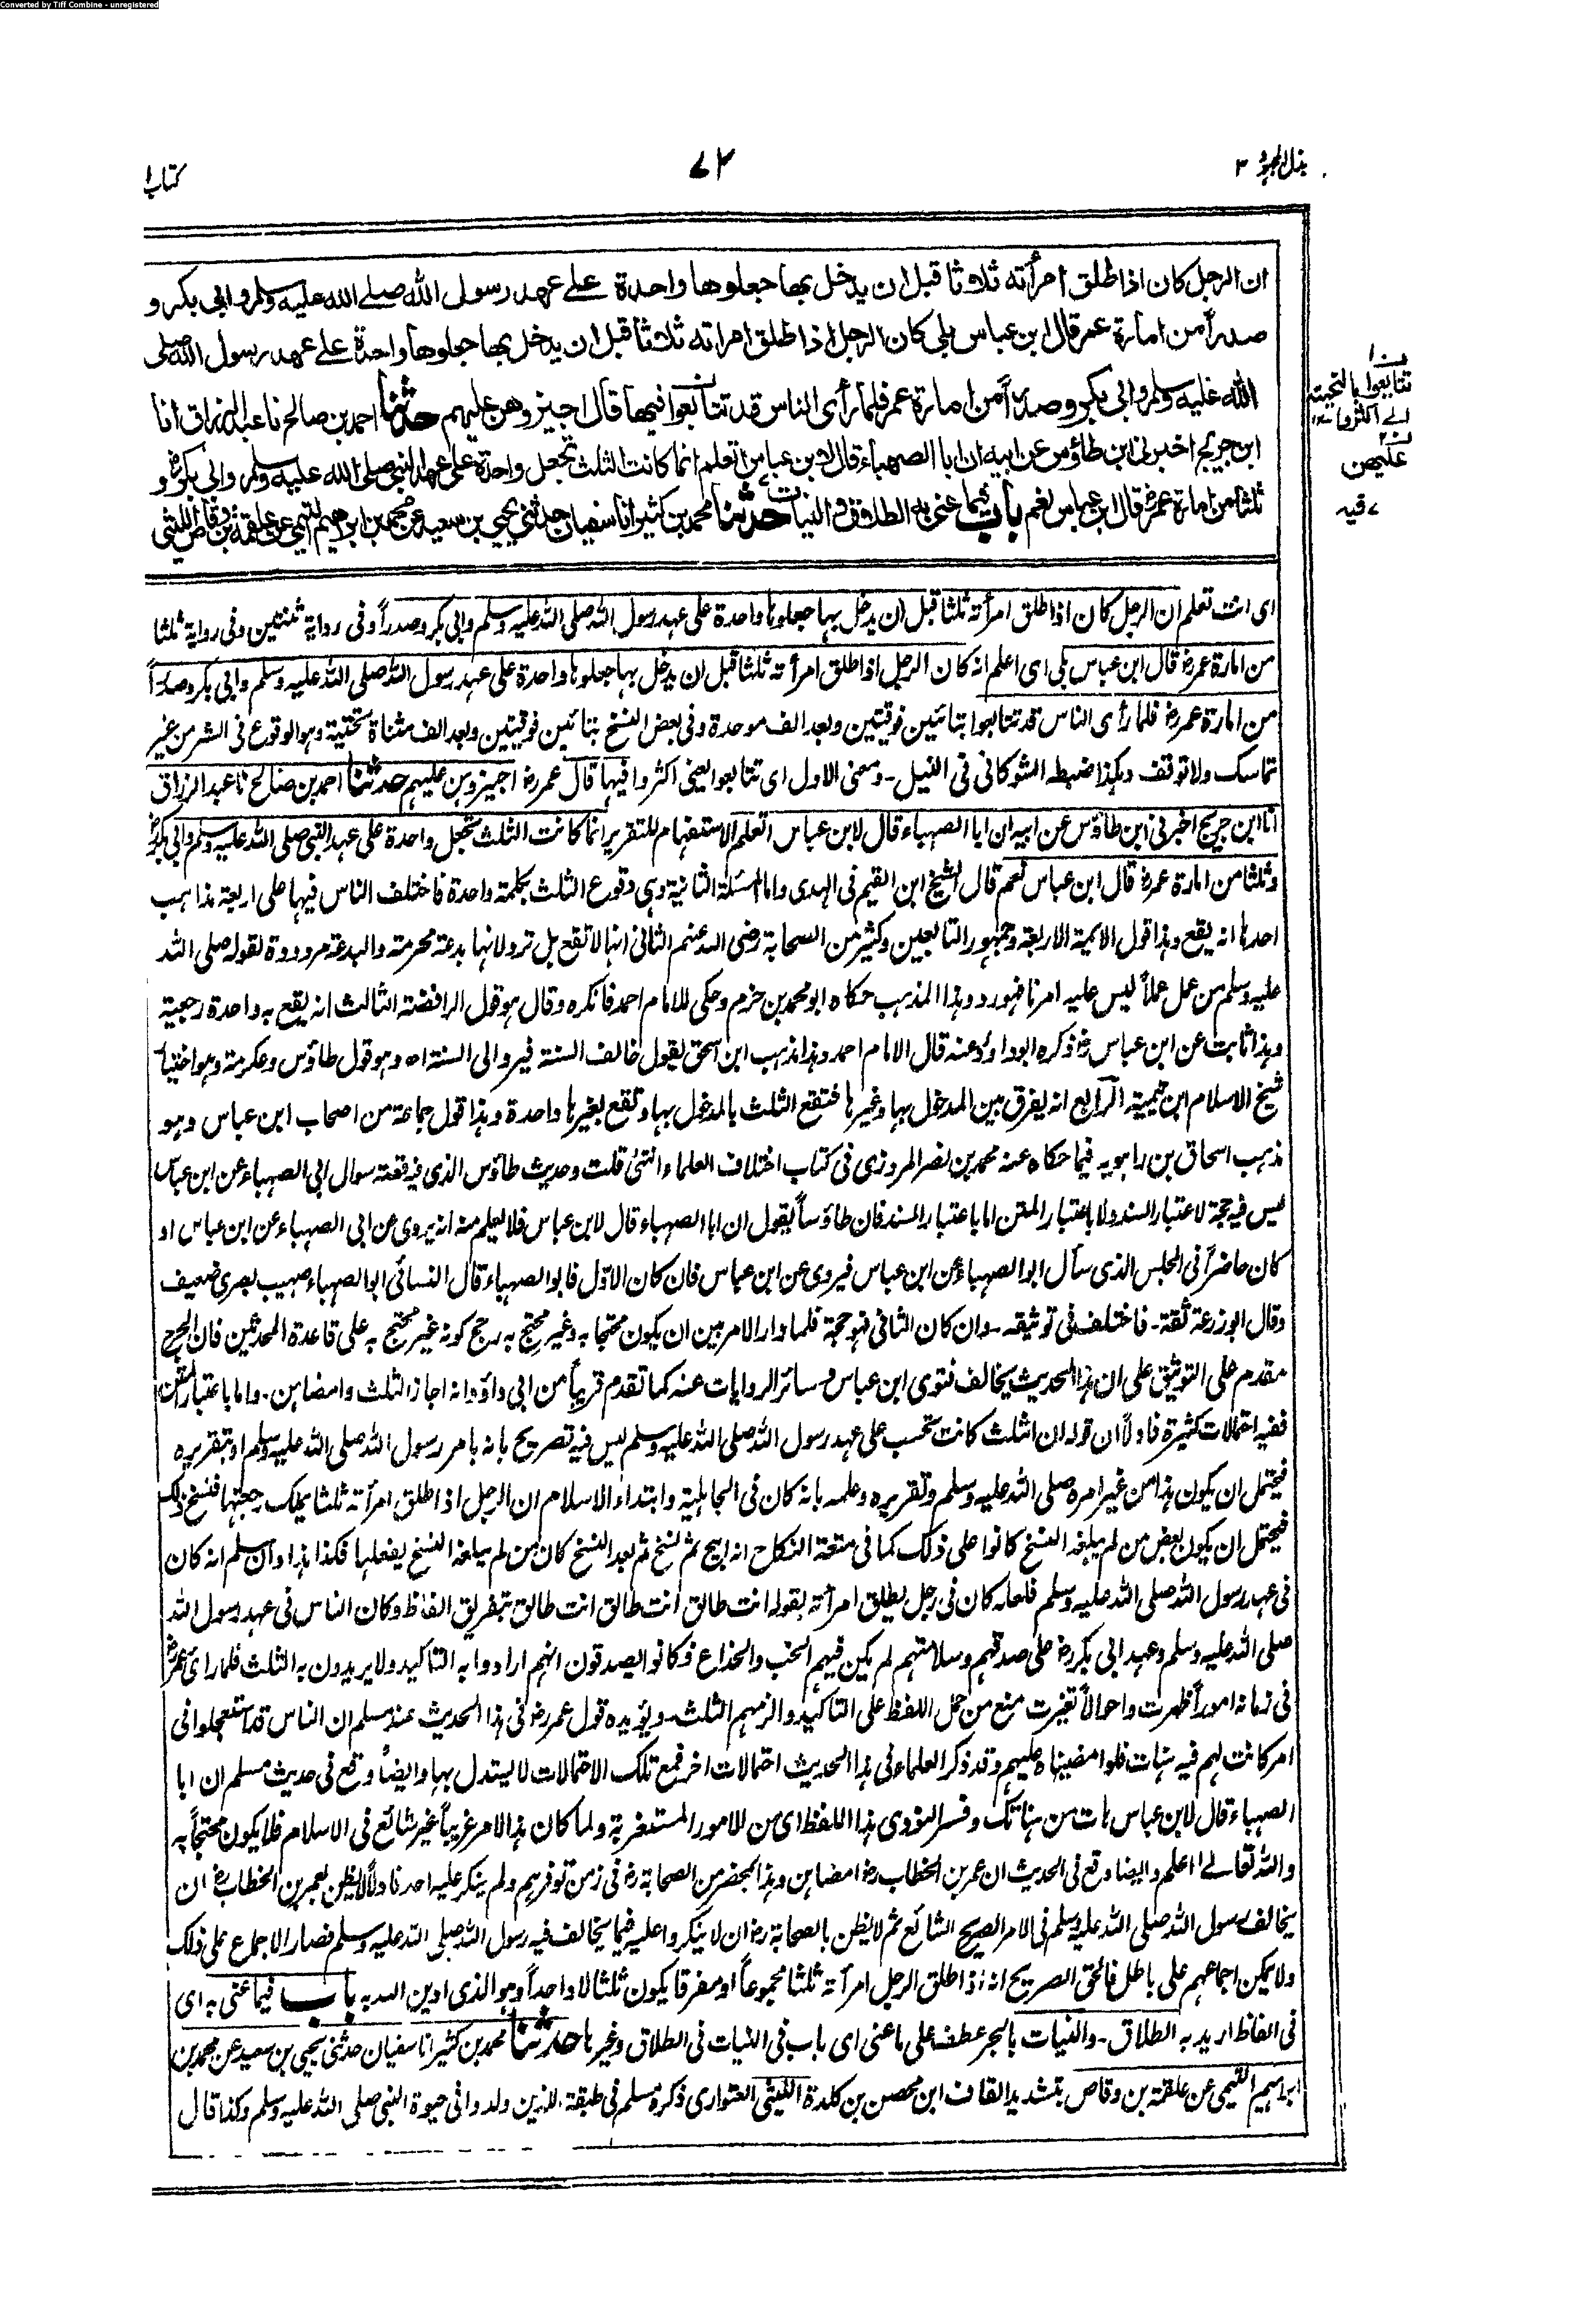 Converted by Tiff Combine - unregistered
بذل المجهود ٣
٧٢
كتاب ا
ان الرجل كان اذا طلق امرأته ثلاثا قبل ان يدخل بها جعلوها واحدة على عهد رسول الله صلى الله عليه وسلم وابي بكر و
صدراً من امارة عمر قال ابن عباس بلى كان الرجل اذا طلق امراته ثلاثا قبل ان يدخل بها جعلوها واحدة على عهد رسول الله صلى
الله عليه وسلم وابي بكر وصدراً من امارة عمر فلما رأى الناس قد تتابعوا فيها قال اجيزوهن عليهم حدثنا احمد بن صالح نا عبد الرزاق انا
ابن جريج اخبرني ابن طاؤس عن ابيه ان ابا الصهباء قال لابن عباس اتعلم انما كانت الثلث تجعل واحدة على عهد النبي صلى الله عليه وسلم وابي بكر رض و
ثلثا من امارة عمر رض قال ابن عباس نعم باب فيما عنى به الطلاق والنيات حدثنا محمد بن كثير انا سفيان حدثني يحيى بن سعيد عن محمد بن ابراهيم التيمي عن علقمة بن وقاص الليثي
تتايعوا بالتحتية
اے اكثروا
عليهن
فيه
اى انت تعلم ان الرجل كان اذا طلق امرأته ثلثا قبل ان يدخل بها جعلوها واحدة على عهد رسول الله صلى الله عليه وسلم وابي بكر وصدراً وفى رواية ثنتين وفى رواية ثلثا
من امارة عمر رض قال ابن عباس بلى اى اعلم انه كان الرجل اذا طلق امرأته ثلثا قبل ان يدخل بها جعلوها واحدة على عهد رسول الله صلى الله عليه وسلم وابي بكر وصدراً
من امارة عمر رض فلما رأى الناس قد تتابعوا بتائين فوقيتين وبعد الف موحدة وفى بعض النسخ بتائين فوقيتين وبعد الف مثناة تحتية وهو الوقوع فى الشر من غير
تماسك ولا توقف وهكذا ضبطه الشوكانى فى النيل ۔ ومعنى الاول اى تتابعوا يعنى اكثروا فيها قال عمر رض اجيزوهن عليهم حدثنا احمد بن صالح نا عبد الرزاق
انا ابن جريج اخبرنى ابن طاؤس عن ابيه ان ابا الصهباء قال لابن عباس اتعلم الاستفهام للتقرير انما كانت الثلث تجعل واحدة على عهد النبى صلى الله عليه وسلم وابى بكر رض
وثلثا من امارة عمر رض قال ابن عباس نعم قال الشيخ ابن القيم فى الهدى واما المسئلة الثانية وهى وقوع الثلث بكلمة واحدة فاختلف الناس فيها على اربعة مذاهب
احدها انه يقع وهذا قول الائمة الاربعة وجمهور التابعين وكثير من الصحابة رضى الله عنهم الثانى انها لا تقع بل ترد لانها بدعة محرمة والبدعة مردودة لقوله صلى الله
عليه وسلم من عمل عملاً ليس عليه امرنا فهو رد وهذا المذهب حكاه ابو محمد بن حزم وحكى للامام احمد فانكره وقال هو قول الرافضة الثالث انه يقع به واحدة رجعية
وهذا ثابت عن ابن عباس رض ذكره ابو داؤد عنه قال الامام احمد وهذا مذهب ابن اسحق يقول خالف السنة فيرد الى السنة اه وهو قول طاؤس وعكرمة وهو اختيار
شيخ الاسلام ابن تيمية الرابع انه يفرق بين المدخول بها وغيرها فتقع الثلث بالمدخول بها وتقع بغيرها واحدة وهذا قول جماعة من اصحاب ابن عباس وهو
مذهب اسحاق بن راهويه فيما حكاه عنه محمد بن نصر المروزى فى كتاب اختلاف العلماء انتهى قلت وحديث طاؤس الذى فيه قصة سوال ابى الصهباء عن ابن عباس
ليس فيه حجة لا عتبار السند ولا باعتبار المتن اما باعتبار السند فان طاؤساً يقول ان ابا الصهباء قال لابن عباس فلا يعلم منه انه يروى عن ابى الصهباء عن ابن عباس او
كان حاضراً فى المجلس الذى سأل ابو الصهباء عن ابن عباس فيروى عن ابن عباس فان كان الاول فابو الصهباء قال النسائى ابو الصهباء صهيب بصرى ضعيف
وقال ابو زرعة ثقة ۔ فاختلف فى توثيقه ۔ وان كان الثانى فهو حجة فلما دار الامر بين ان يكون محتجا به وغير محتج به رجح كونه غير محتج به على قاعدة المحدثين فان الجرح
مقدم على التوثيق على ان هذا الحديث يخالف فتوى ابن عباس وسائر الروايات عنه كما تقدم قريباً من ابى داؤد انه اجاز الثلث وامضاهن ۔ واما باعتبار المتن
ففيه احتمالات كثيرة فاولاً ان قوله ان الثلث كانت تحسب على عهد رسول الله صلى الله عليه وسلم ليس فيه تصريح بانه بامر رسول الله صلى الله عليه وسلم او بتقريره
فيحتمل ان يكون هذا من غير امره صلى الله عليه وسلم وتقريره وعلمه بانه كان فى الجاهلية وابتداء الاسلام ان الرجل اذا طلق امرأته ثلثا يملك رجعتها فنسخ ذلك
فيحتمل ان يكون بعض من لم يبلغه النسخ كانوا على ذلك كما فى متعة النكاح انه ابيح ثم نسخ ثم بعد النسخ كان من لم يبلغه النسخ يفعلها فكذا هذا وان سلم انه كان
فى عهد رسول الله صلى الله عليه وسلم فلعله كان فى رجل يطلق امرأته بقوله انت طالق انت طالق انت طالق بتفريق الفاظ وكان الناس فى عهد رسول الله
صلى الله عليه وسلم وعهد ابى بكر رض على صدقهم وسلامتهم لم يكن فيهم الخب والخداع فكانوا يصدقون انهم ارادوا به التاكيد ولا يريدون به الثلث فلما راى عمر رض
فى زمانه اموراً ظهرت واحوالاً تغيرت منع من حمل اللفظ على التأكيد والزمهم الثلث ۔ ويؤيده قول عمر رض فى هذا الحديث عند مسلم ان الناس قد استعجلوا فى
امر كانت لهم فيه هنات فلو امضيناه عليهم وقد ذكر العلماء فى هذا الحديث احتمالات اخر فمع تلك الاحتمالات لا يستدل بها وايضاً وقع فى حديث مسلم ان ابا
الصهباء قال لابن عباس هات من هناتك وفسر النووى هذا اللفظ اى من الامور المستغربة ولما كان هذا الامر غريباً غير شائع فى الاسلام فلا يكون محتجاً به
والله تعالے اعلم وايضا وقع فى الحديث ان عمر بن الخطاب رض امضاهن وهذا بمحضر من الصحابة رض فى زمن توفرهم ولم ينكر عليه احد فاولاً لا يظن لعمر بن الخطاب رض ان
يخالف رسول الله صلى الله عليه وسلم فى الامر الصريح الشائع ثم لا يظن بالصحابة رض ان لا ينكروا عليه فيما يخالف فيه رسول الله صلى الله عليه وسلم فصار الاجماع على ذلك
ولا يمكن اجماعهم على باطل فالحق الصريح انه اذا طلق الرجل امرأته ثلثا مجموعاً او مفرقا يكون ثلثا لا واحداً وهو الذى ادين الله به باب فيما عنى به اى
فى الفاظ اريد به الطلاق ۔ والنيات بالجر عطف على ما عنى اى باب فى النيات فى الطلاق وغيرها حدثنا محمد بن كثير انا سفيان حدثنى يحيى بن سعيد عن محمد بن
ابراهيم التيمى عن علقمة بن وقاص بتشديد القاف ابن محصن بن كلدة الليثى العتوارى ذكره مسلم فى طبقة الذين ولدوا فى حيوة النبى صلى الله عليه وسلم وكذا قال